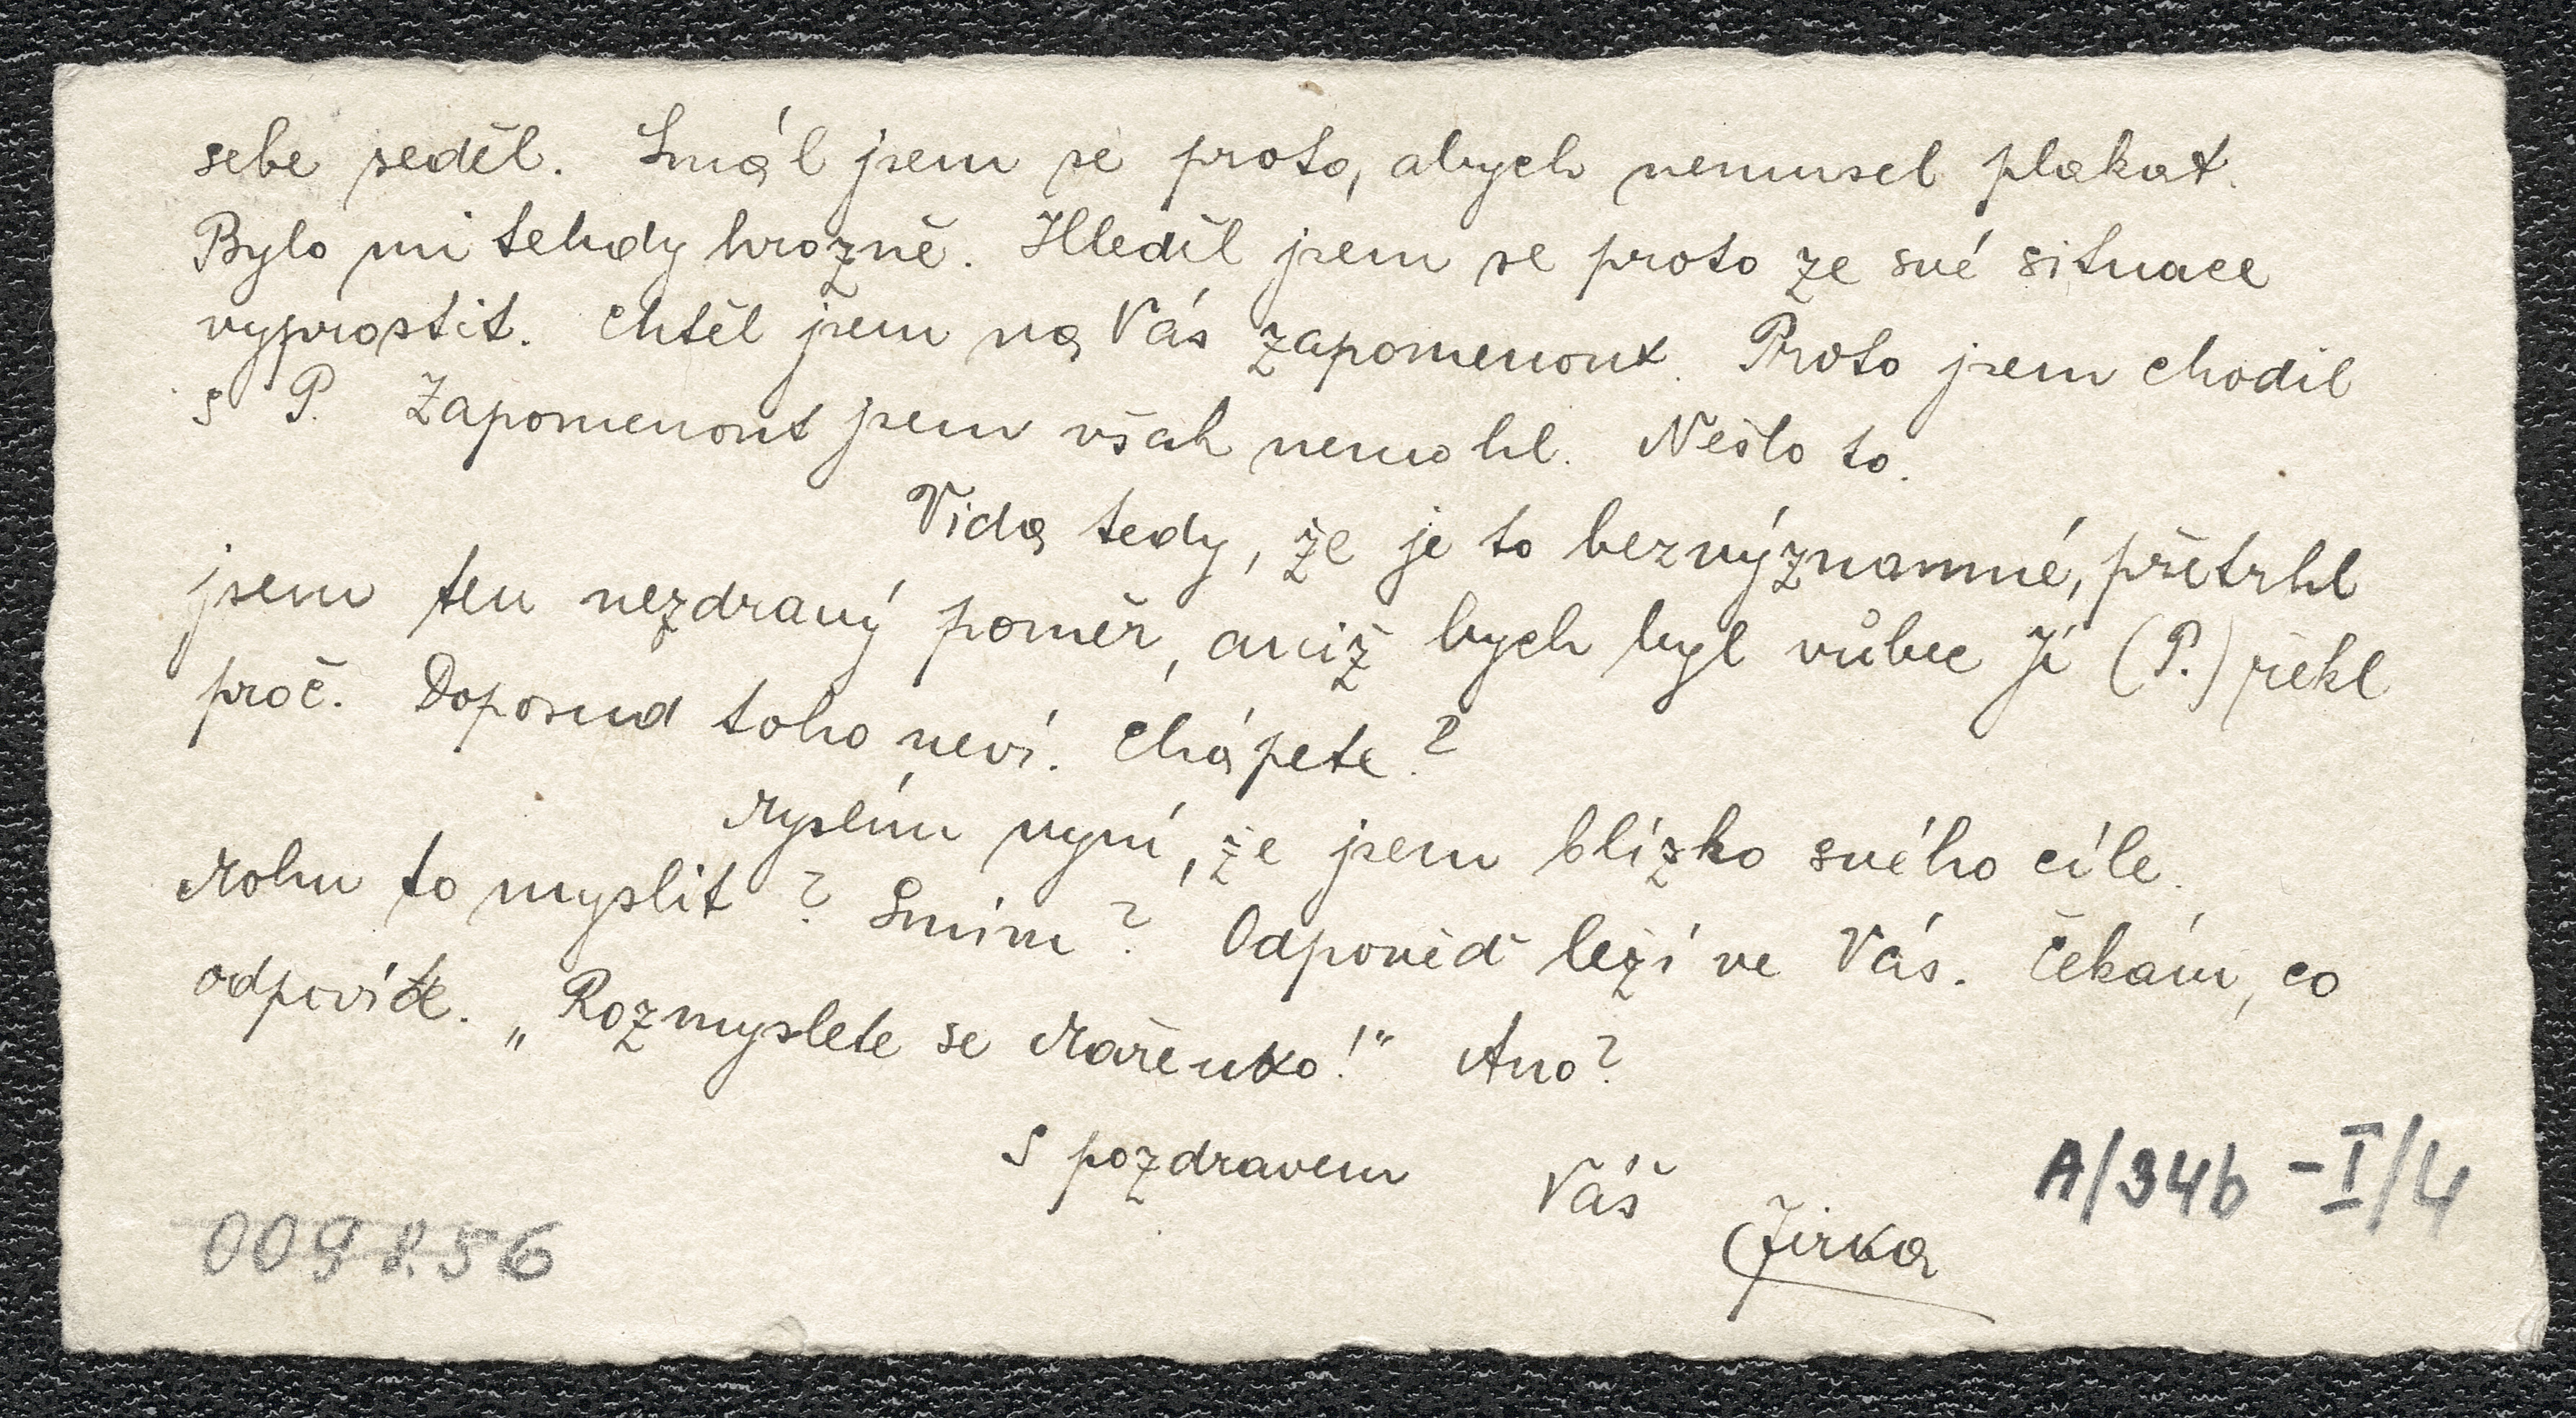 sebe seděl. Smál jsem se proto, abych nemusel plakat.
Bylo mi tehdy hrozně. Hleděl jsem se proto ze své situace
vyprostit. Chtěl jsem na Vás zapomenout. Proto jsem chodil
s P. Zapomenout jsem však nemohl. Nešlo to.
Vida tedy, že je to bezvýznamné, přetrhl
jsem ten nezdravý poměr, aniž bych byl vůbec Jí (P.) řekl
proč. Doposud toho neví. Chápete?
Myslím nyní, že jsem blízko svého cíle.
Mohu to myslit? Smím? Odpověď leží ve Vás. Čekám, co
odpovíte. „Rozmyslete se Mařenko!" Ano?
S pozdravem Váš
Jirka
A/34b -I/4
009856